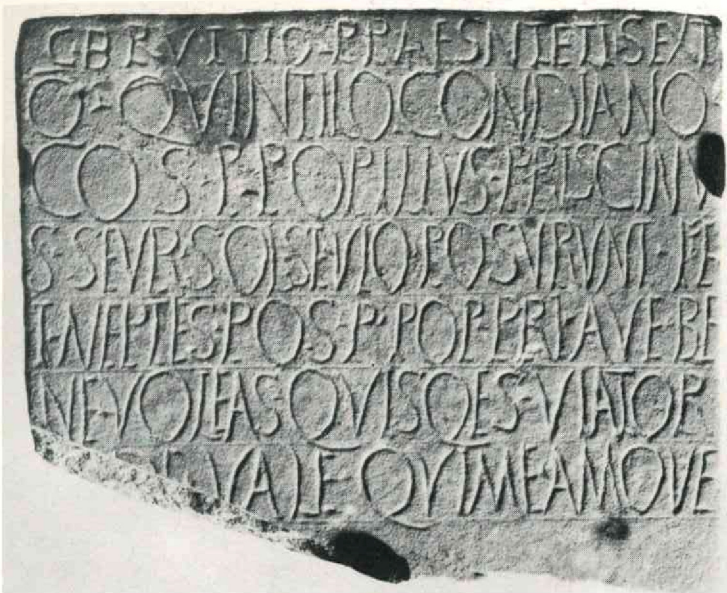 C·BRVTTIO·P·PRAESNTETI·SEXT
O·QVINTILO·CONDIANO·
COS·P·POPILIVS·P·PISCINV
S·SEVERSOI·SEVIO·POSVRVNT·
T·NEPTES·POS·P·POP·PRI·AVE·BE
NEVOLEAS·QVISQES·VIATOR
VALE·QVI·ME·AMOVE